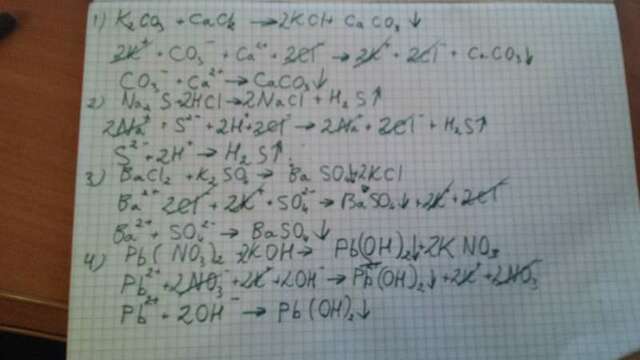 1) K₂CO₃ + CaCl₂ → 2KCl + CaCO₃↓
2K⁺ + CO₃⁻ + Ca²⁺ + 2Cl⁻ → 2K⁺ + 2Cl⁻ + CaCO₃↓
CO₃⁻ + Ca²⁺ → CaCO₃↓
2) Na₂S + 2HCl → 2NaCl + H₂S↑
2Na⁺ + S²⁻ + 2H⁺ + 2Cl⁻ → 2Na⁺ + 2Cl⁻ + H₂S↑
S²⁻ + 2H⁺ → H₂S↑
3) BaCl₂ + K₂SO₄ → BaSO₄↓ 2KCl
Ba²⁺ 2Cl⁻ + 2K⁺ + SO₄²⁻ → BaSO₄↓ + 2K⁺ + 2Cl⁻
Ba²⁺ + SO₄²⁻ → BaSO₄↓
4) Pb(NO₃)₂ 2KOH → Pb(OH)₂↓ + 2KNO₃
Pb²⁺ + 2NO₃⁻ + 2K⁺ + 2OH⁻ → Pb(OH)₂↓ + 2K⁺ + 2NO₃⁻
Pb²⁺ + 2OH⁻ → Pb(OH)₂↓